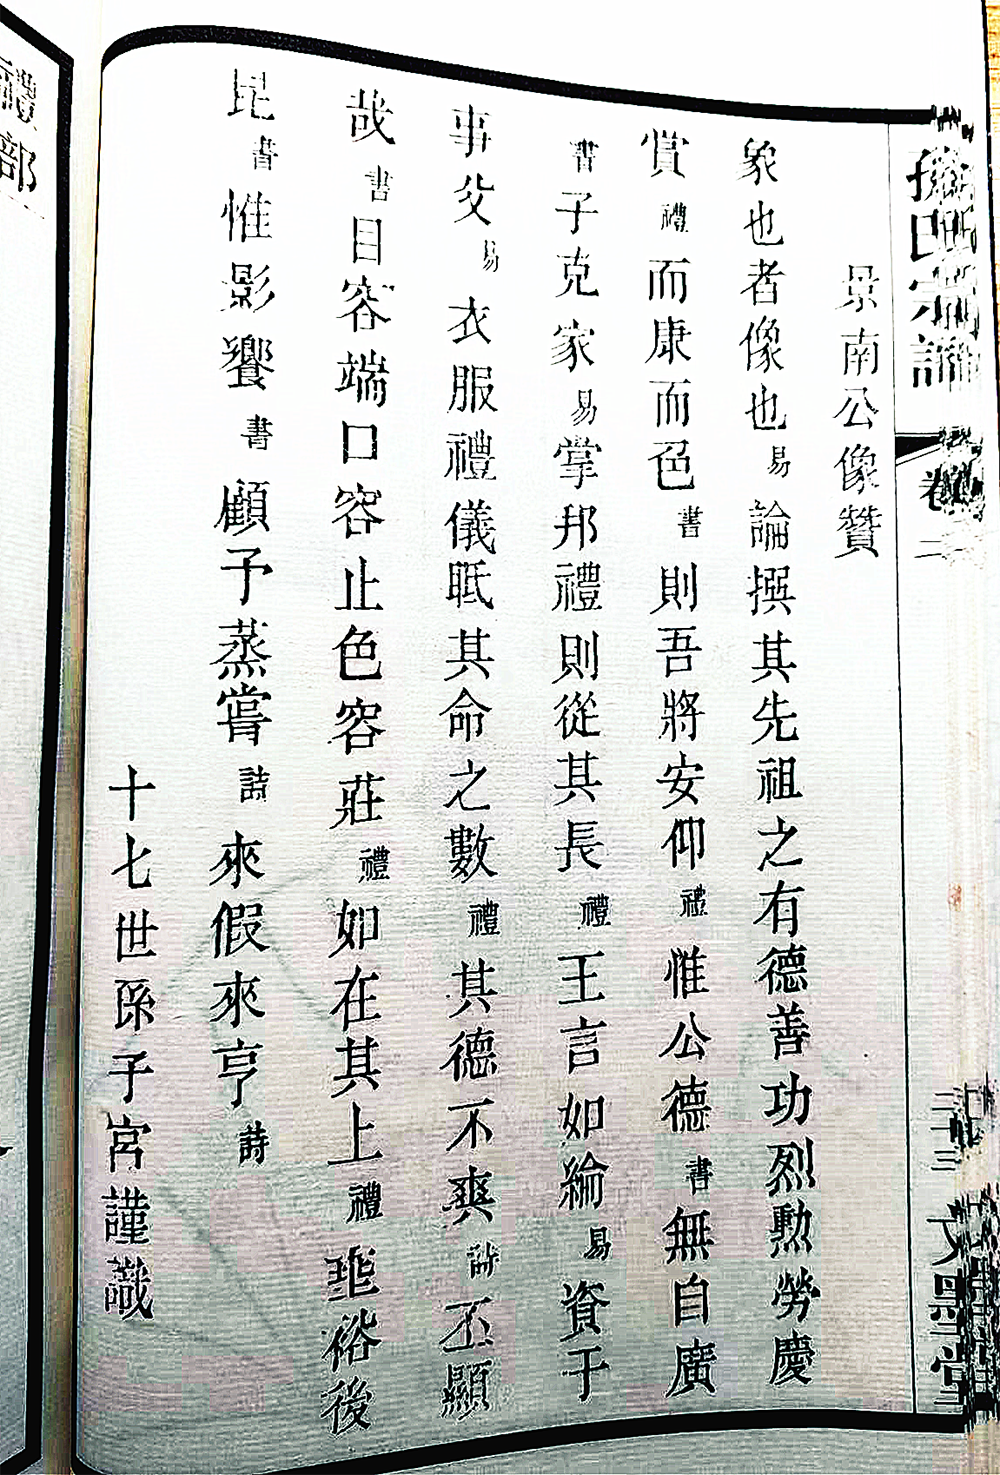 景南公像贊
象也者像也易論撰其先祖之有德善功烈勲勞慶
賞禮而康而色書則吾將安仰禮惟公德書無自廣
書子克家易掌邦禮則從其長禮王言如綸易資于
事父易衣服禮儀眂其命之數禮其德不爽詩丕顯
哉書目容端口容止色容莊禮如在其上禮垂裕後
昆書惟影響書顧予蒸嘗詩來假來亨詩
十七世孫子宮謹識
宗譜
卷二
文墨堂
禮部